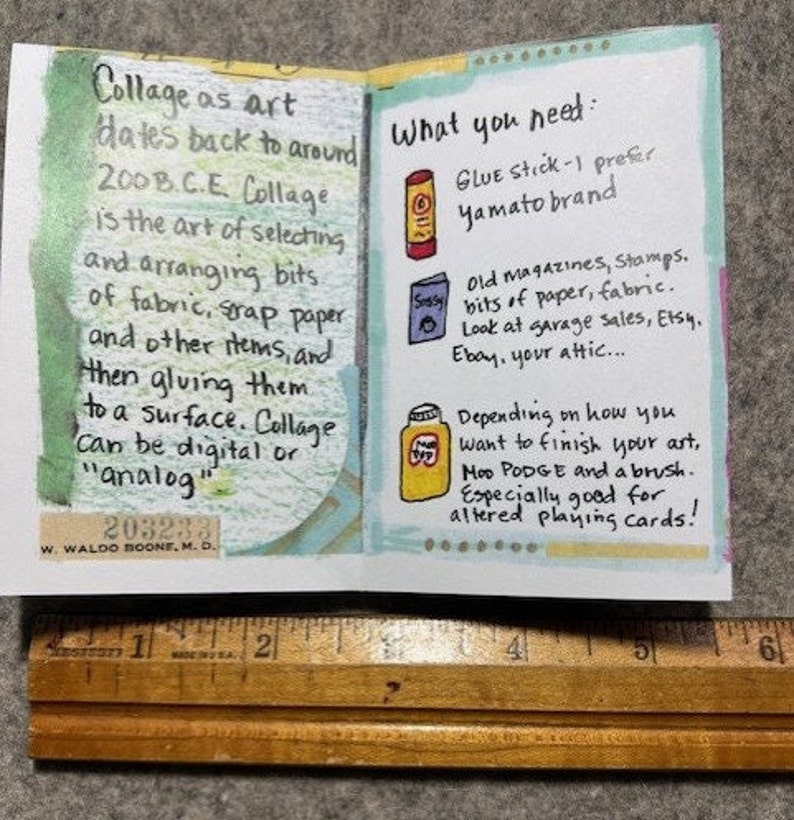 Collage as art
dates back to around
200 B.C.E. Collage
is the art of selecting
and arranging bits
of fabric, scrap paper
and other items, and
then gluing them
to a surface. Collage
can be digital or
"analog"
203233
W. WALDO BOONE, M. D.
What you need:
GLUE STICK - I prefer
yamato brand
Old Magazines, Stamps,
bits of paper, fabric.
Look at garage sales, Etsy,
Ebay, your attic...
Sassy
Depending on how you
want to finish your art,
Moo PODGE and a brush.
Especially good for
altered playing cards!
1 2 3 4 5 6
MADE IN U.S.A.